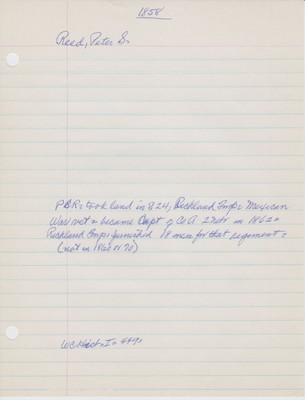 1858
Reed, Peter S.
P.B.R. took land in 824, Richland Twp: Mexican
War vet = became Capt of Co A 27th in 1862 =
Richland Twp furnished 18 men for that regiment =
(not in 1860 or 70)
WC Hist = I = 449